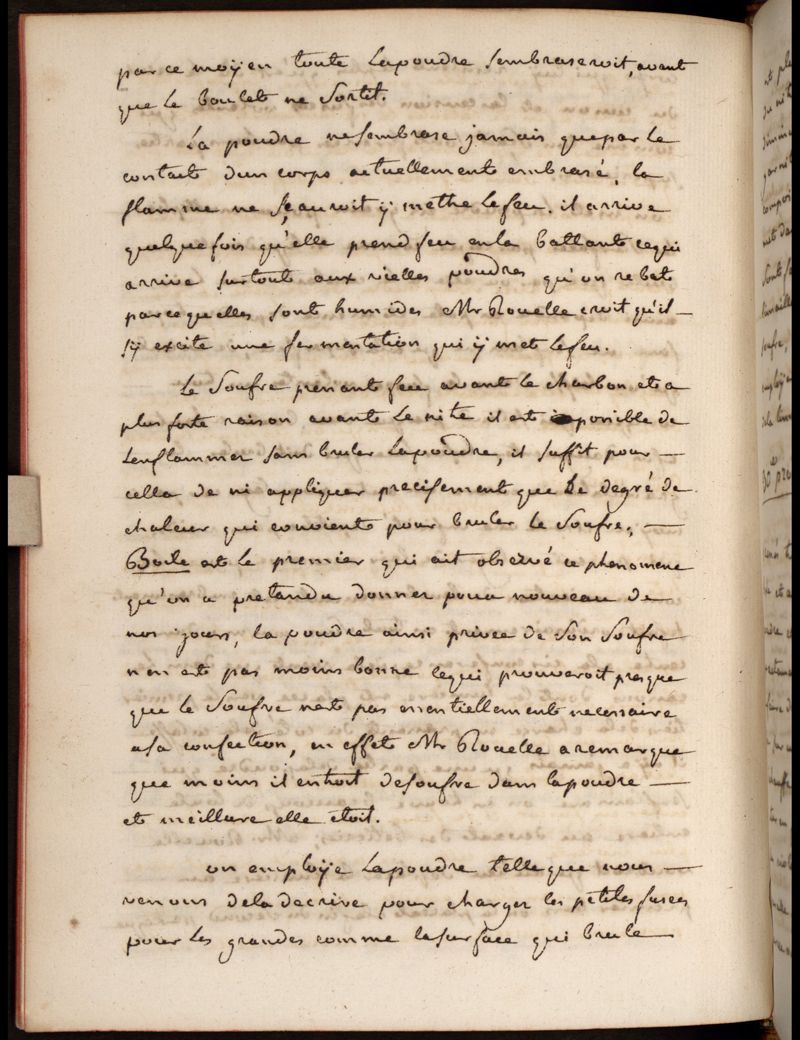 par ce moÿen toute Lapoudre sembraseroit, avant
que le boulet ne sortit.
La poudre nesembrase jamais quepar le
contact dun corps actuellement embrasé, la
flamme ne sçauroit ÿ mettre lefeu. il arrive
quelque fois qu'elle prend feu enla battant cequi
arrive surtout aux vielles poudres qu'on rebat
parcequelles sont humides Mr Rouelle croit qu'il —
sÿ excite une fermentation qui ÿ met lefeu.
Le Soufre prenant feu avant le charbon et a
plus forte raison avant le nitre il est impossible de
Lenflammer sans bruler Lapoudre, il suffit pour —
cella de ni appliquer precisement que Le degré de
chaleur qui convient pour bruler le Soufre, —
Boile est le premier qui ait observé ce phenomene
qu'on a pretandu donner pour nouveau de
nos jours, la poudre ainsi privee de Son Soufre
nen est pas moins bonne cequi prouveroit presque
que le Soufre nest pas essentiellement necessaire
asa confection, en effet Mr Rouelle aremarque
que moins il entroit desoufre dans lapoudre —
et meillure elle etoit.
on emploÿe Lapoudre telleque nous —
venons dela decrire pour charger les petites fusées
pour les grandes comme lasurface qui brule